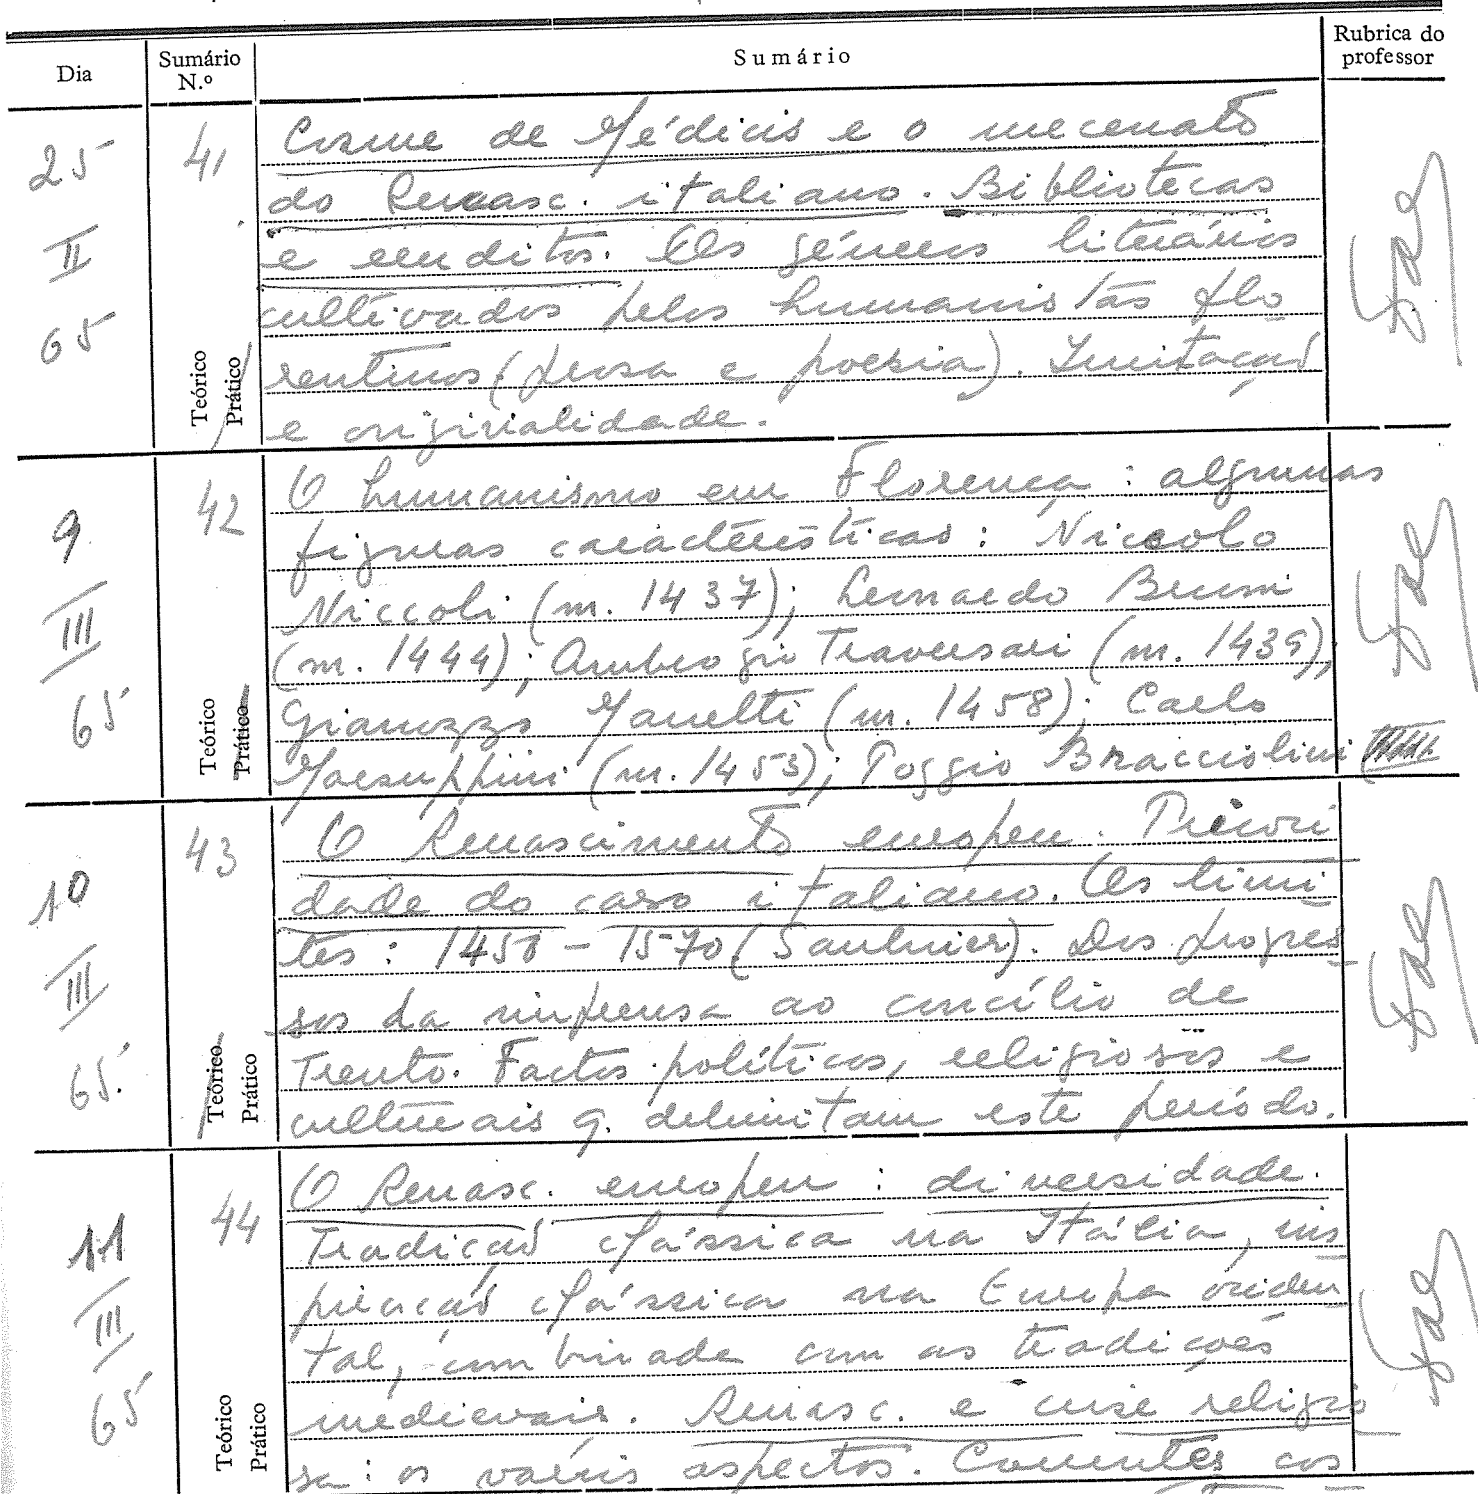 Dia Sumário N.º Sumário Rubrica do professor
25 II 65
41
Teórico
Prático
Cosme de Médicis e o mecenato
do Renasc. italiano. Bibliotecas
e eruditos. Os géneros literários
cultivados pelos humanistas flo
rentinos (prosa e poesia). Imitação
e originalidade.
9 III 65
42
Teórico
Prático
O humanismo em Florença: algumas
figuras características: Niccolo
Niccoli (m. 1437); Leonardo Bruni
(m. 1444); Ambrogio Traversari (m. 1439),
Gianozzo Manetti (m. 1458); Carlo
Marsuppini (m. 1453); Poggio Bracciolini
10 III 65.
43
Teórico
Prático
O Renascimento europeu. Priori
dade do caso italiano. Os limi
tes: 1450 - 1570 (Saulnier). Dos progres
sos da imprensa ao concílio de
Trento. Factos políticos, religiosos e
culturais q. delimitam este período.
11 III 65
44
Teórico
Prático
O Renasc. europeu: diversidade.
Tradição clássica na Itália, ins
piração clássica na Europa ociden
tal, combinada com as tradições
medievais. Renasc. e crise religio
sa: os vários aspectos. Correntes cos